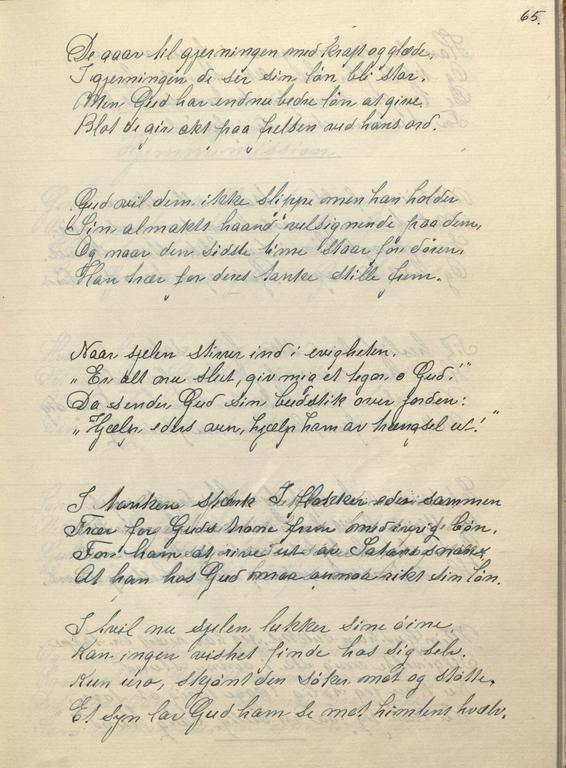 65.
De gaar til gjerningen med kraft og glæde,
I gjerningen de ser sin løn bli stor.
Men Gud har endnu bedre løn at give,
Blot de gir akt paa helsen ved hans ord.
Gud vil dem ikke slippe men han holder
Sin almakts haand velsignende paa dem,
Og naar den sidste time staar for døren,
Han trær for deres tanke stille frem.
Naar sjelen stirrer ind i evigheten.
"Er alt nu slut, giv mig et tegn o Gud!"
Da sender Gud sin budstik over jorden:
"Hjælp eders ven, hjælp ham av trængsel ut!"
I tanken stærk I flokker eder sammen
Trær for Guds trone frem med inrig bøn.
For ham at rive ut av Satans snarer
At han hos Gud maa motta rikt sin løn.
I hvil nu sjelen lukker sine øine
Kan ingen vishet finde hos sig selv.
Kun uro, skjønt den søker mot og støtte,
Et syn lar Gud ham se mot himlens hvælv.